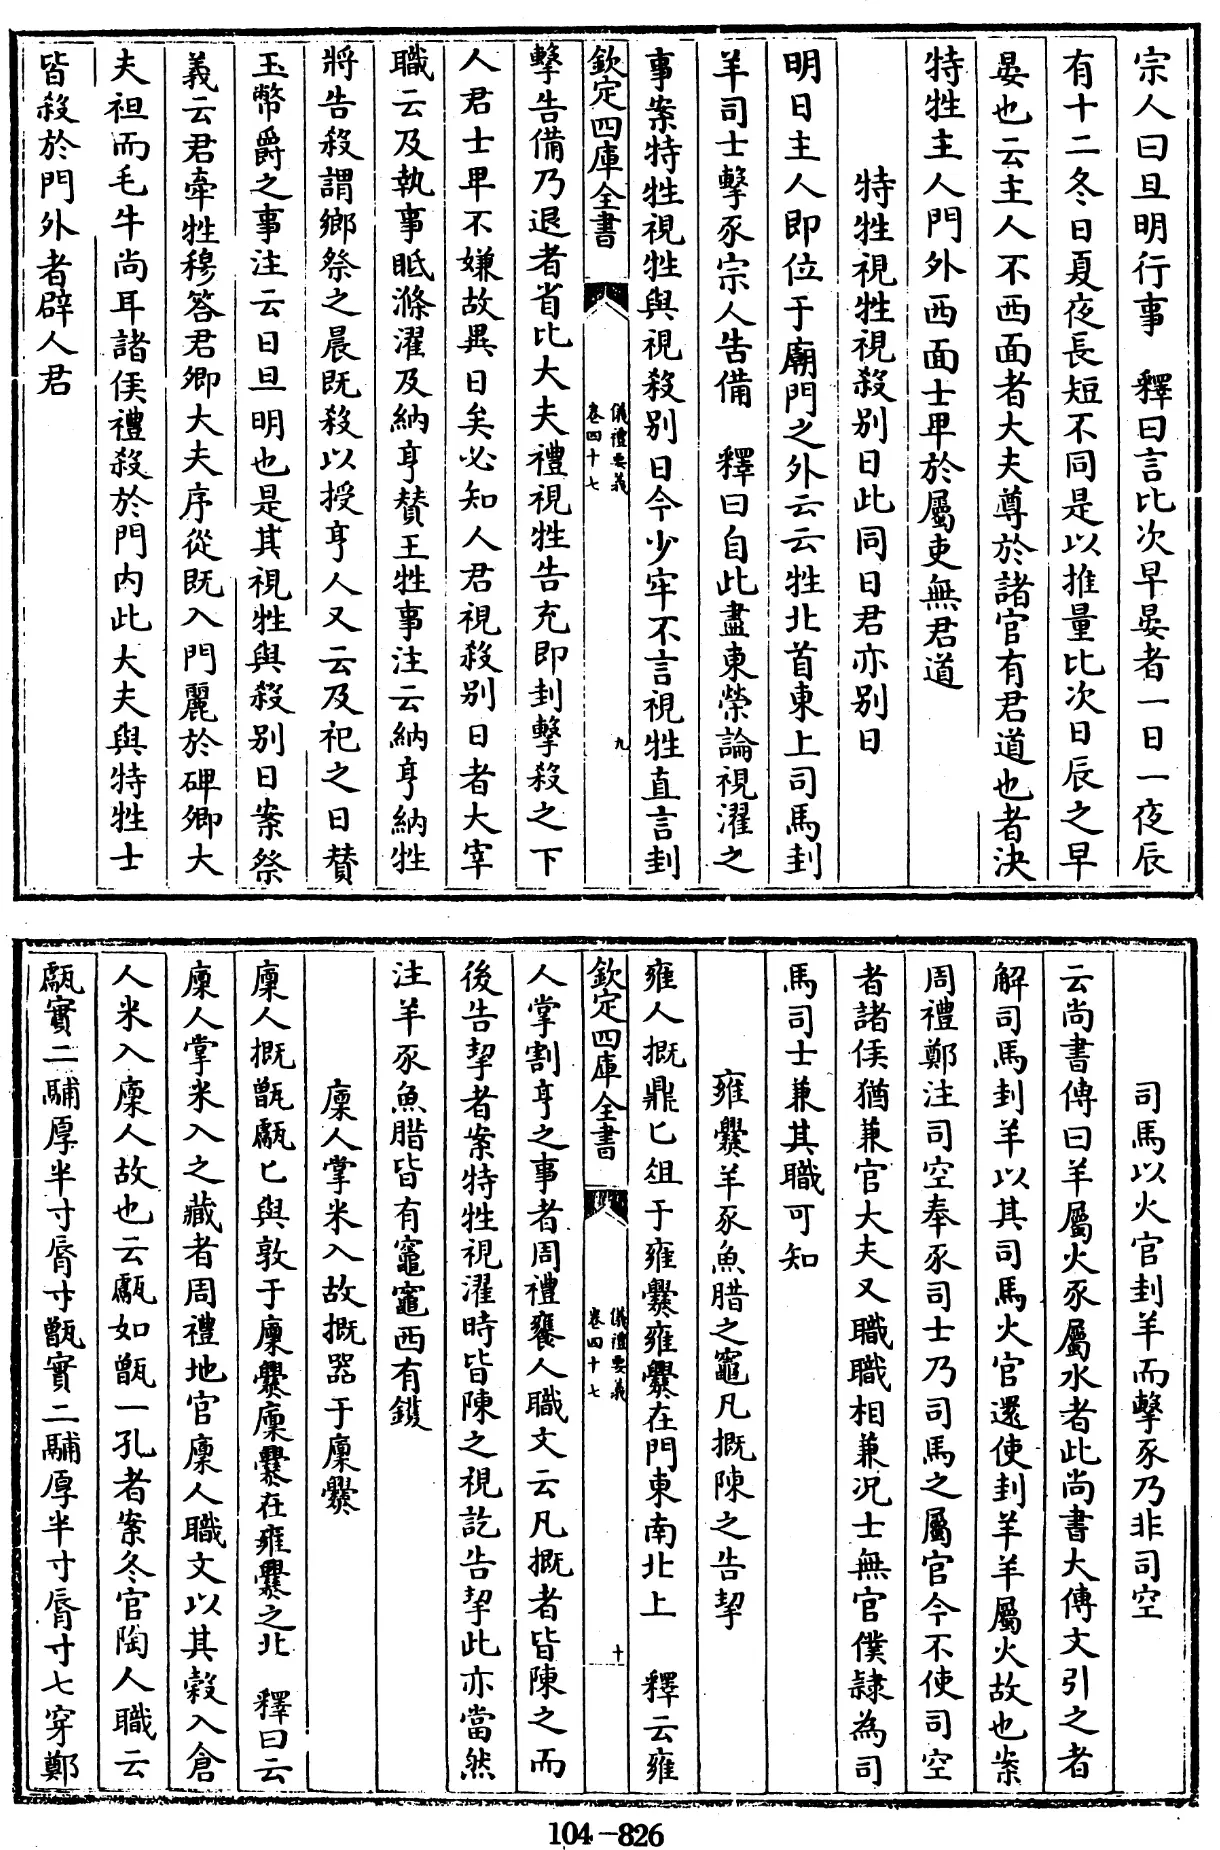 宗人曰旦明行事　釋曰言比次早晏者一日一夜辰
有十二冬日夏夜長短不同是以推量比次日辰之早
晏也云主人不西面者大夫尊於諸官有君道也者決
特牲主人門外西面士卑於屬吏無君道
特牲視牲視殺别日此同日君亦别日
明日主人即位于廟門之外云云牲北首東上司馬刲
羊司士擊豕宗人告備　釋曰自此盡東榮論視濯之
事案特牲視牲與視殺别日今少牢不言視牲直言刲
欽定四庫全書
儀禮要義
卷四十七
九
擊告備乃退者省比大夫禮視牲告充即刲擊殺之下
人君士卑不嫌故異日矣必知人君視殺别日者大宰
職云及執事眡滌濯及納亨賛王牲事注云納亨納牲
將告殺謂鄉祭之晨既殺以授亨人又云及祀之日賛
玉幣爵之事注云日旦明也是其視牲與殺别日案祭
義云君牽牲穆答君卿大夫序從既入門麗於碑卿大
夫袒而毛牛尚耳諸侯禮殺於門内此大夫與特牲士
皆殺於門外者辟人君
司馬以火官刲羊而擊豕乃非司空
云尚書傳曰羊屬火豕屬水者此尚書大傳文引之者
解司馬刲羊以其司馬火官還使刲羊羊屬火故也案
周禮鄭注司空奉豕司士乃司馬之屬官今不使司空
者諸侯猶兼官大夫又職職相兼况士無官僕隸為司
馬司士兼其職可知
雍爨羊豕魚腊之竈凡摡陳之告挈
雍人摡鼎匕俎于雍爨雍爨在門東南北上　釋云雍
欽定四庫全書
儀禮要義
卷四十七
十
人掌割亨之事者周禮饔人職文云凡摡者皆陳之而
後告挈者案特牲視濯時皆陳之視訖告挈此亦當然
注羊豕魚腊皆有竈竈西有鑊
廩人掌米入故摡器于廩爨
廩人摡甑甗匕與敦于廩爨廩爨在雍爨之北　釋曰云
廩人掌米入之藏者周禮地官廩人職文以其穀入倉
人米入廩人故也云甗如甑一孔者案冬官陶人職云
甗實二鬴厚半寸脣寸甑實二鬴厚半寸脣寸七穿鄭
104-826